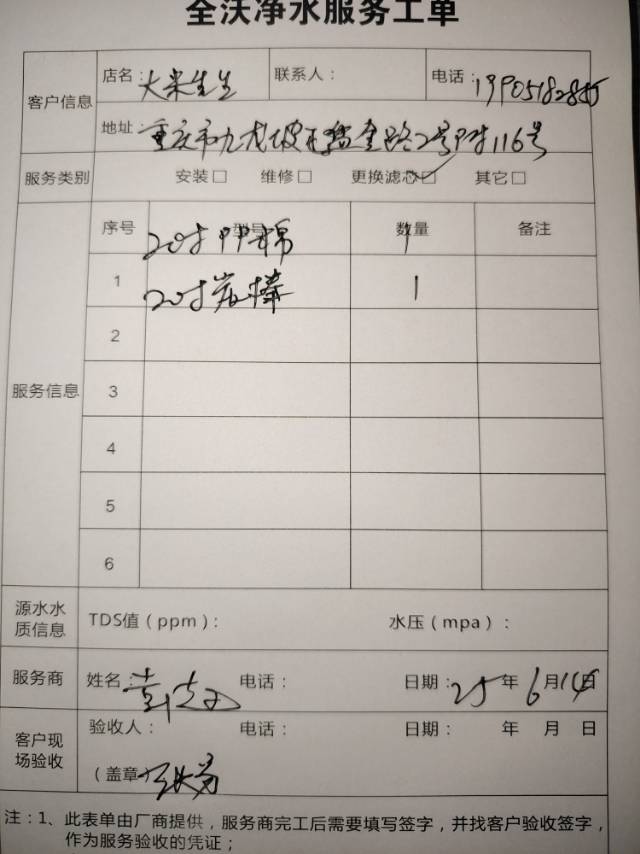 全沃净水服务工单
客户信息
店名: 大米先生 联系人: 电话: 19905182885
地址: 重庆市九龙坡 路2号附116号
服务类别 安装□ 维修□ 更换滤芯☑ 其它□
服务信息
序号 型号 数量 备注
20寸PP棉 1
1 20寸炭棒 1
2
3
4
5
6
源水水质信息 TDS值(ppm): 水压(mpa):
服务商 姓名: 电话: 日期: 25年6月14日
客户现场验收 验收人: 电话: 日期: 年 月 日
(盖章
注:1、此表单由厂商提供,服务商完工后需要填写签字,并找客户验收签字,
作为服务验收的凭证;